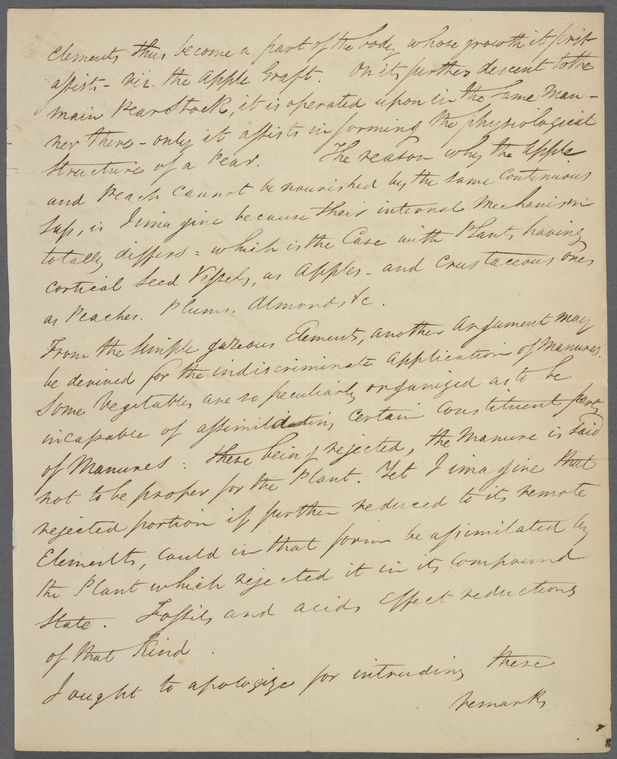 Elements thus become a part of the body whose growth it first
assists - viz. the Apple Graft. On its further descent to the
main Pear Stock, it is operated upon in the same man-
ner there - only it assists in forming the physiological
structure of a Pear. The reason why the Apple
and Peach cannot be nourished by the same continuous
sap, is I imagine because their internal mechanism
totally differs = which is the Case with Plants having
cortical Seed Vessels, as Apples - and Crustaceous ones
as Peaches. Plums. Almonds &c.
From the simple gazeous Elements, another Argument may
be derived for the indiscriminate application of Manures.
Some Vegetables are so peculiarly organized as to be
incapable of assimilating certain Constituent parts
of Manures: these being rejected, the Manure is said
not to be proper for the Plant. Yet I imagine that
rejected portion if further reduced to its remote
Elements, could in that form be assimilated by
the Plant which rejected it in its compound
State. Fossils and acids effect reductions
of that Kind.
I ought to apologize for intruding these
remarks